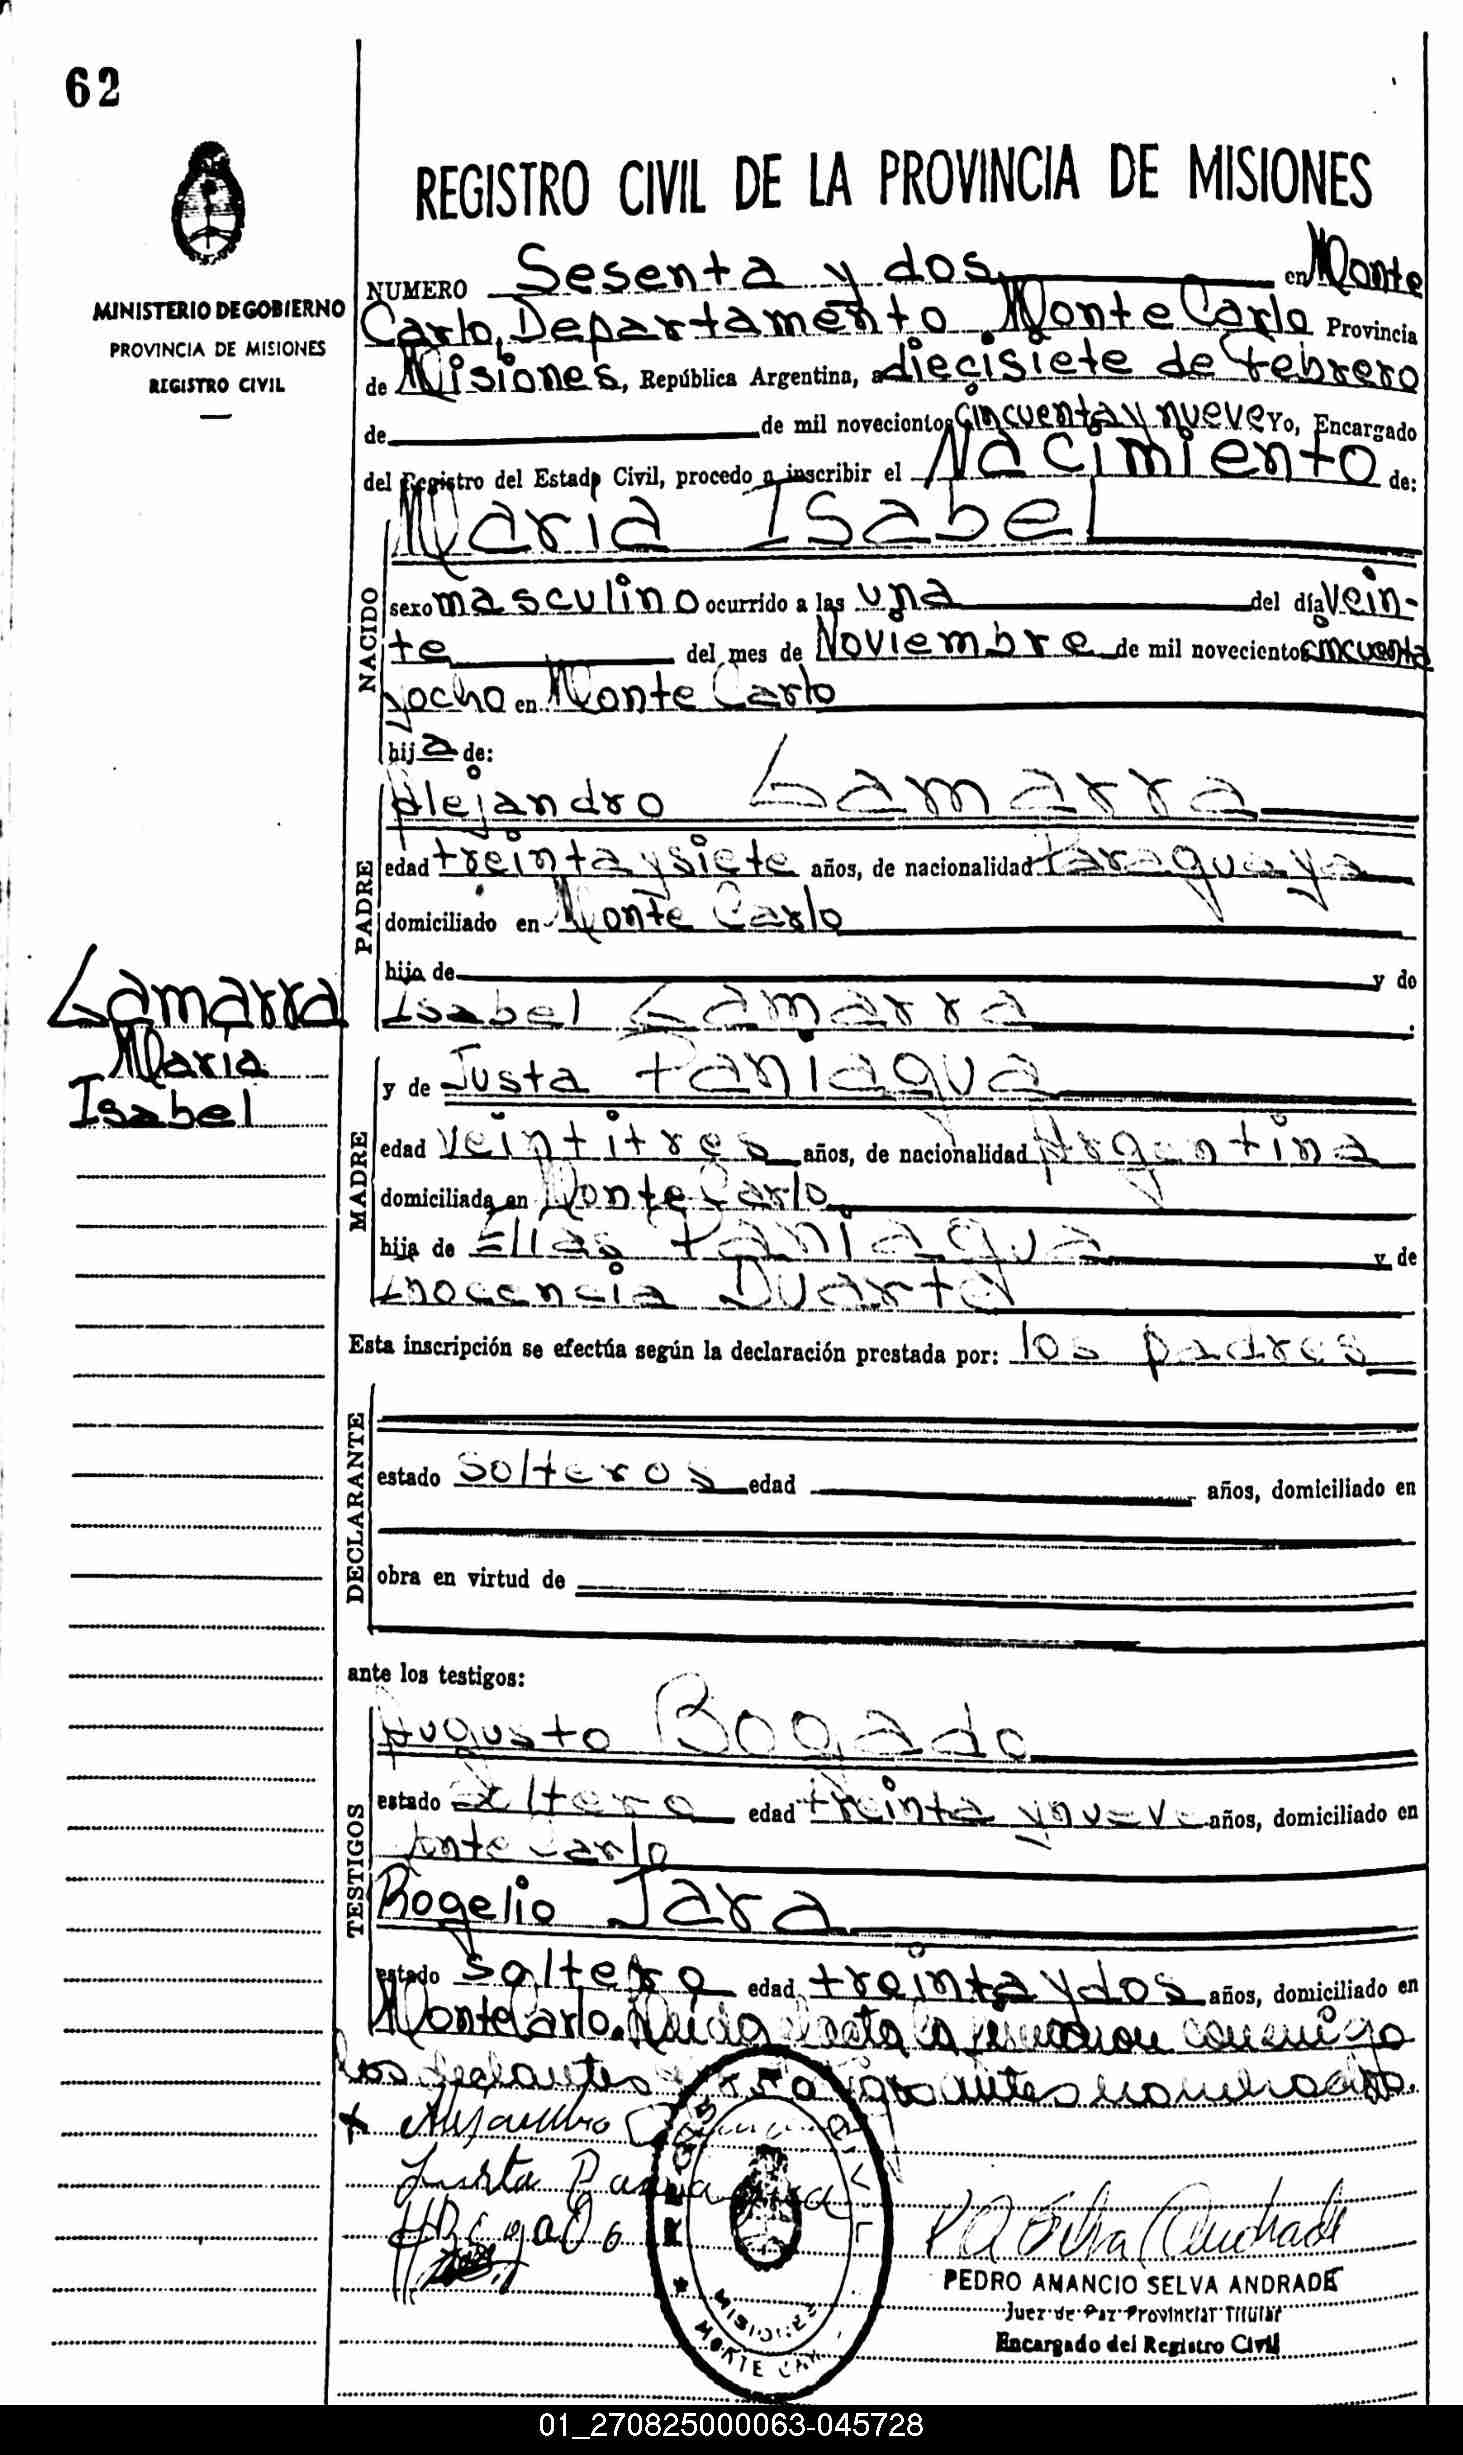 62
REGISTRO CIVIL DE LA PROVINCIA DE MISIONES
MINISTERIO DE GOBIERNO
PROVINCIA DE MISIONES
REGISTRO CIVIL
NUMERO Sesenta y dos en Monte
Carlo, Departamento Monte Carlo Provincia
de Misiones, República Argentina, a diecisiete de febrero
de de mil novecientos cincuenta y nueve Yo, Encargado
del Registro del Estado Civil, procedo a inscribir el Nacimiento de:
NACIDO
Maria Isabel
sexo masculino ocurrido a las una del día vein-
te del mes de Noviembre de mil novecientos cincuenta
y ocho en Monte Carlo
hija de:
PADRE
Alejandro Lamarra
edad treinta y siete años, de nacionalidad Paraguaya
domiciliado en Monte Carlo
hijo de y de
Isabel Lamarra
Lamarra
Maria
Isabel
MADRE
y de Justa Paniagua
edad veintitres años, de nacionalidad Argentina
domiciliada en Monte Carlo
hija de Elias Paniagua y de
Inocencia Duarte
Esta inscripción se efectúa según la declaración prestada por: los padres
DECLARANTE
estado solteros edad años, domiciliado en
obra en virtud de
ante los testigos:
TESTIGOS
Augusto Bogado
estado soltero edad treinta y nueve años, domiciliado en
Monte Carlo
Rogelio Jara
estado soltero edad treinta y dos años, domiciliado en
Monte Carlo. Leida el acta la firmaron conmigo
los declantes y testigos antes nombrados.
Alejandro Lamarra
Justa Paniagua
A Bogado
REGIS CIVIL
MISIONES
MONTE CAR
P A Selva Andrade
PEDRO AMANCIO SELVA ANDRADE
Juez de Paz Provincial Titular
Encargado del Registro Civil
01_270825000063-045728